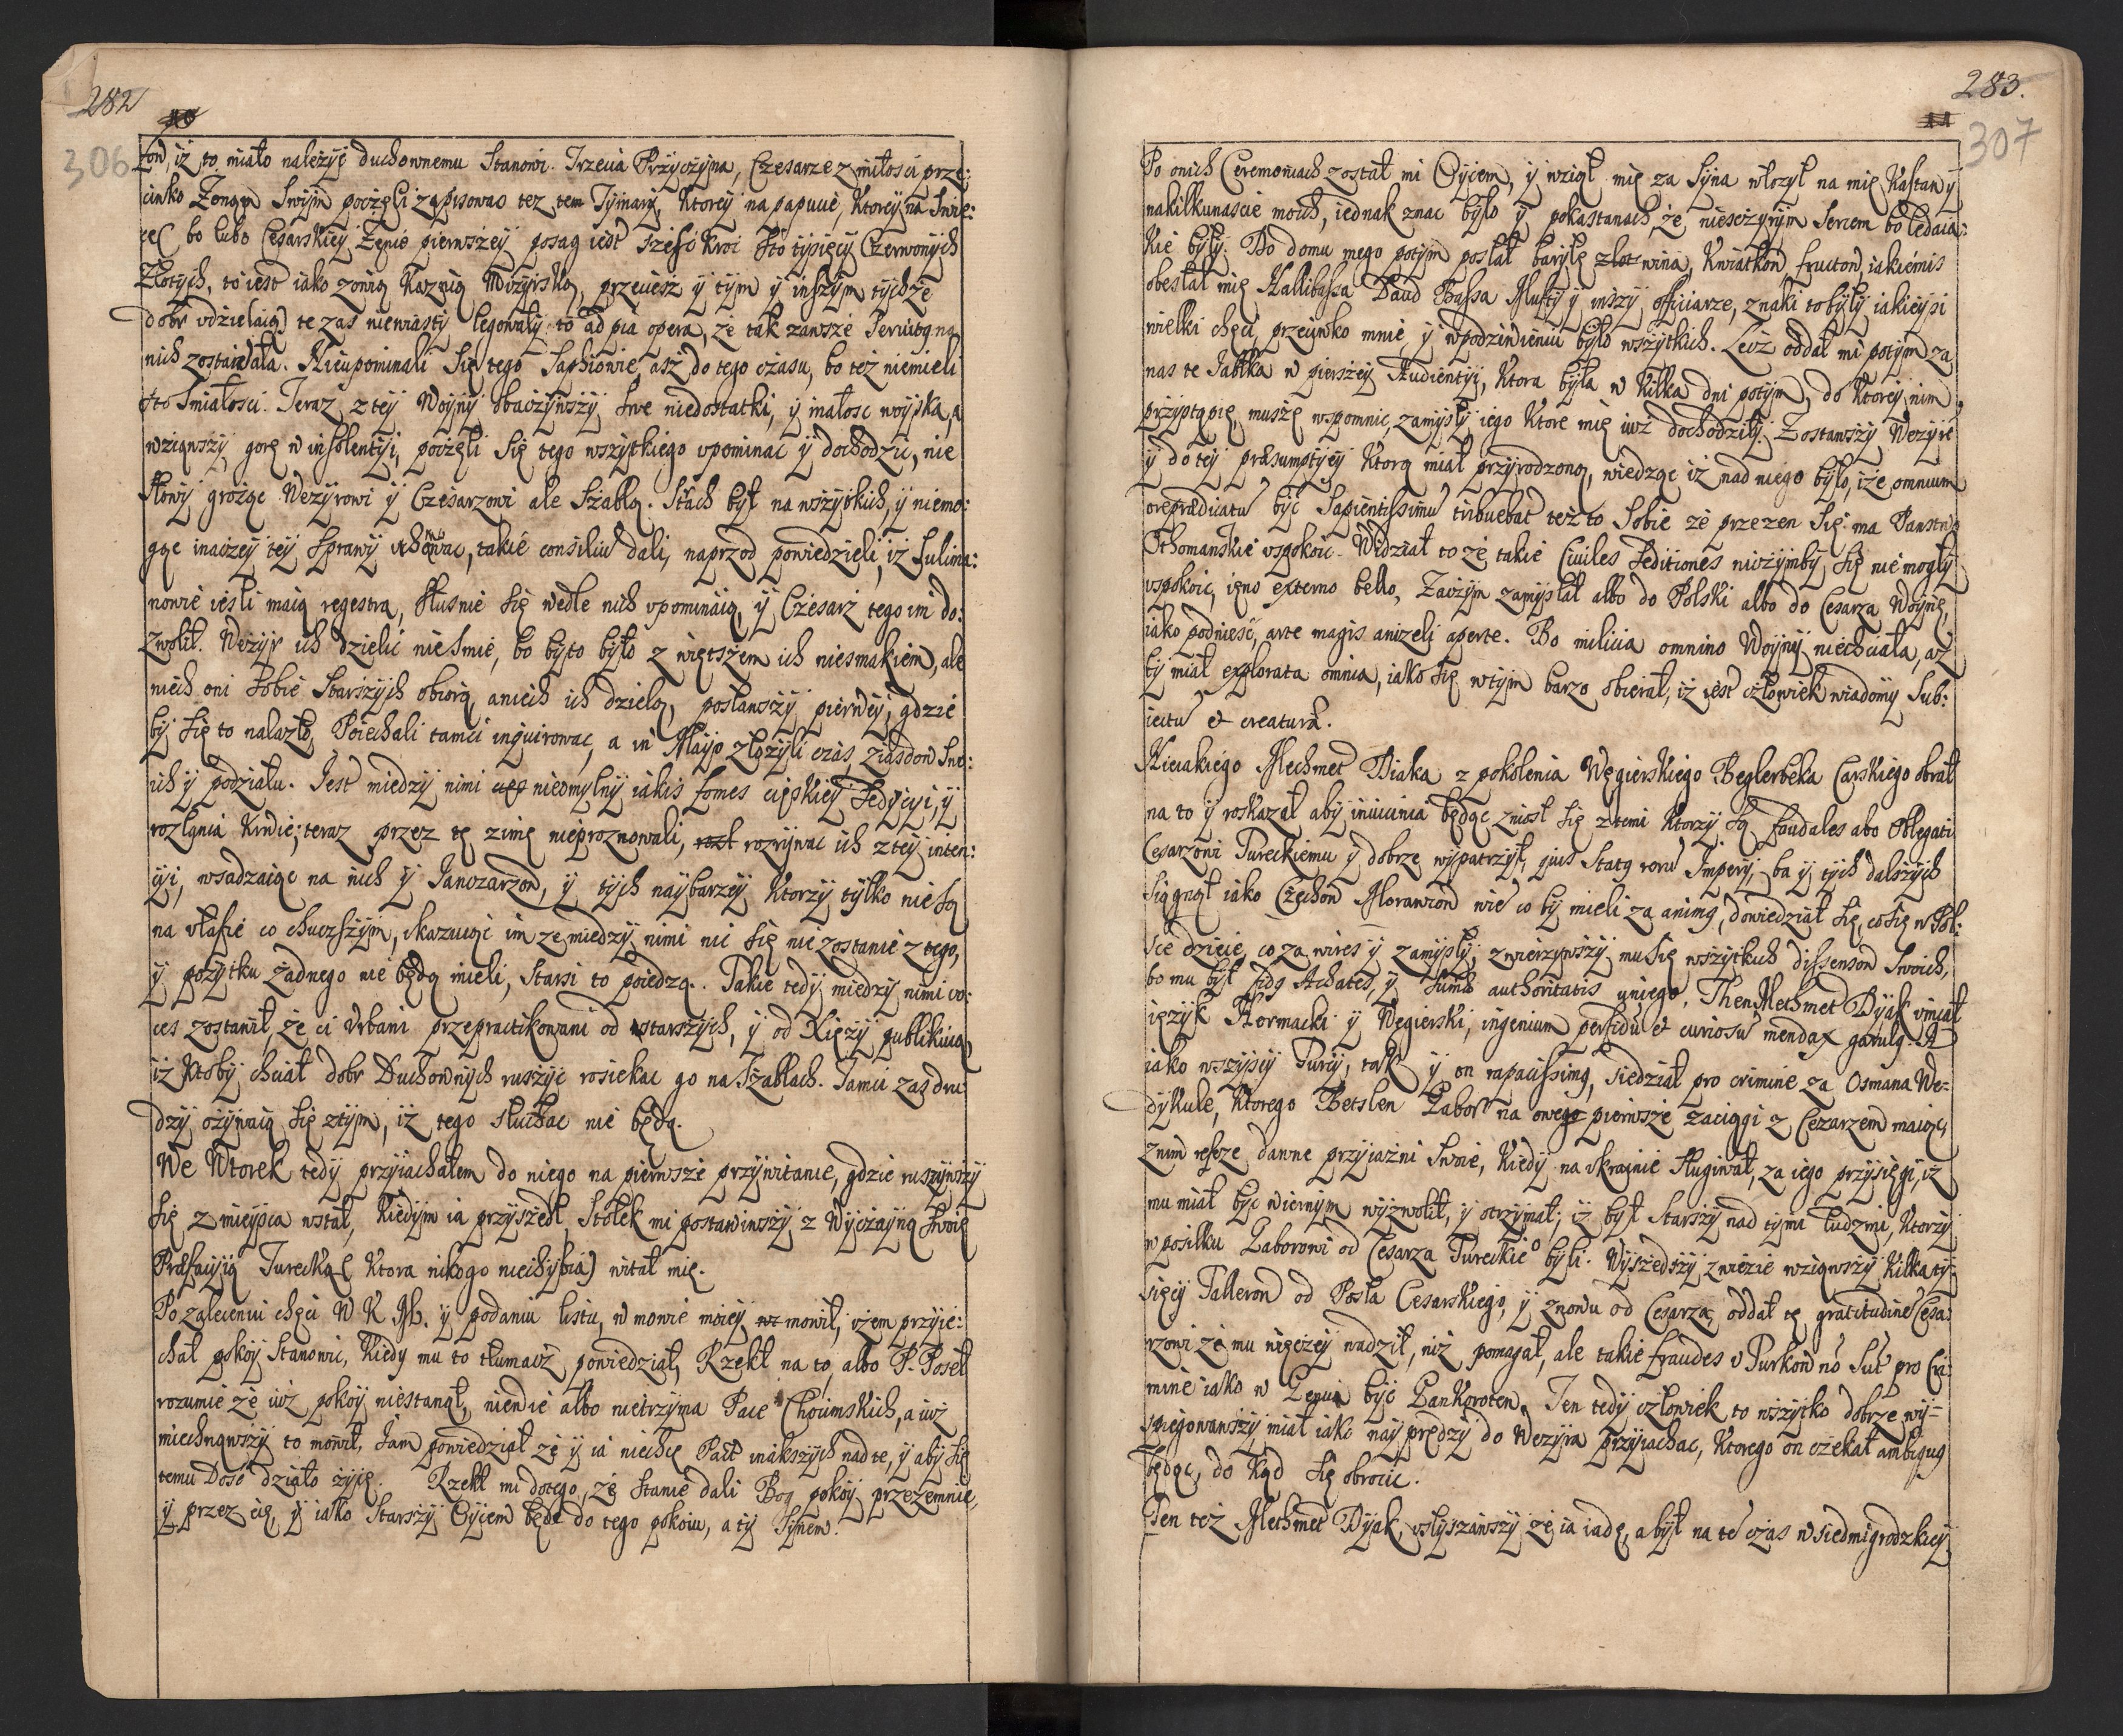 282
306
ton, iż to miało należyć duchownemu Stanowi. Trzecia Przyczyna, Czesarze z miłosci prze:
ciwko Żonąm Swÿm poczęli zapisowac też tem Tÿmarÿ, Ktoreÿ na papucie, Ktoreÿ na Swie:
ce( bo lubo Cesarskieÿ Żenie pierwszeÿ posag iest szesc kroc sto tÿsięcÿ Czerwonÿch
Złotÿch, to iest iako zowią Kaznią Mizÿrską, przeciesz ÿ tÿm ÿ inszÿm tÿchże
dobr vdzielaią) te zas niewiastÿ legowałÿ to ad pia opera, że tak zawsze Seruitg na
nich zostawała. Nieupominali Się tego Saphiowie, asz do tego czasu, bo też niemieli
sto Smiałosci. Teraz z teÿ Woÿnÿ obaczÿwszÿ swe niedostatki, ÿ małosc woÿska, a
wziąwszÿ gorę w insolentÿi, poczęli Się tego wszÿtkiego vpominac ÿ dochodzic, nie
Słowÿ grożąc Wezÿrowi ÿ Czesarzowi ale Szablą. Stach bÿł na wszÿtkich, ÿ niemo:
gąc inaczeÿ teÿ Sprawÿ vchowac, takie consiliu dali, naprzod powiedzieli, iż Sulima:
nowie iesli maią regestra, słusnie się wedle nich vpominaią, ÿ Czesarz tego im do:
zwolił. Wezÿr ich dzielic niesmie, bo bÿto bÿło z więtszem ich niesmakiem, ale
niech oni sobie Starszÿch obiorą, a niech ich dzielą, posławszÿ pierweÿ, gdzie
bÿ się to nalazło, Poiechali tamci inquirowac, a in Maÿo złożÿli czas, ziasdow Sne:
ich ÿ podziału. Jest miedzÿ nimi nieomÿlnÿ iakis fomes ciężkieÿ Sedÿcÿi, ÿ
rozlania krwie; teraz przez tę zimę nieproznowali, rozrÿwac ich z teÿ inten:
cÿi, wsadzaiąc na nich ÿ Janczarzow, ÿ tÿch naÿbarzeÿ Ktorzÿ tÿlko nie są
na vłafie co chuczszÿm, skazuiąc im ze miedzÿ nimi nic się nie zostanie z tego,
ÿ pożÿtku żadnego nie będą mieli, Starsi to poiedzą. Takie tedÿ miedzÿ nimi vo:
ces zostawił, że ci Vrbani przepractikowani od starszÿch, ÿ od Xiężÿ publikuią
iż ktobÿ chciał dobr Duchownÿch ruszÿc rosiekac go na Szablach. Tamci zas dru:
dzÿ ozÿwaią się z tÿm, iż tego słuchac nie będą.
We Wtorek tedÿ przÿiachałem do niego na pierwsze przÿwitanie, gdzie ruszÿwszÿ
Się z mieÿsca wstał, Kiedÿm ia przÿszedł, Stołek mi postawiwszÿ z Wÿczaÿną Swoię
Præfacÿią Turecką( Ktora nikogo niechÿbia) witał mię.
Po zaleceniu chęci W K M. ÿ podaniu listu, w mowie moieÿ mowił, iżem przÿie:
chał pokoÿ Stanowic, Kiedy mu to tłumacz powiedział, Rzekł na to, albo P. Poseł
rozumie że iuż pokoÿ niestanął, niewie albo nietrzÿma Pace Choimskich, a iuż
miechnąwszÿ to mowił, Jam powiedział że ÿ ia niechcę Pact inakszÿch nad te, ÿ abÿ się
temu Dosc działo zÿcię. Rzekł mi do tego, że Stanie dali Bog pokoÿ przezemnie,
ÿ przez cię, ÿ iako Starszÿ Oÿcem będę do tego pokoiu, a tÿ Sÿnem.
283.
11
307
Po onich Ceremoniach został mi Oÿcem, ÿ wziął mię za Sÿna włożÿł na mię Kaftan ÿ
nakilkunascie moich, iednak znac bÿło ÿ pokaftanach, że niesczÿrÿm Sercem bo ledaia:
kie bÿłÿ. Do domu mego potÿm posłał barÿłę wina, Kwiatkow fructow, iakiemis
obesłał mię Hallibassa Daud Bassa Muftÿ ÿ inszÿ officiarze, znaki to bÿłÿ iakieÿsi
wielki chęci przeciwko mnie, ÿ wpodziwieniu bÿło wszÿtkich. Lecz oddał mi potÿm za
nas te Jabłka w pierszeÿ Audientÿi, Ktora bÿła w kilka dni potÿm, do Ktoreÿ nim
przÿstąpię, muszę wspomnic, zamÿsłÿ iego Ktore mię iuż dochodziłÿ. Zostawszÿ Wezÿre
ÿ do teÿ præsumptÿeÿ Ktorą miał przÿrodzoną, wiedząc iż nad niego bÿło, iże omnium
ore prædicatu bÿc Sapientissimu tribuebat też to Sobie że przezen Się ma Panstwo
Othomanskie vspokoic. Widział to że takie Ciuiles Seditiones niczÿmbÿ się nie mogłÿ
vspokoic, ieno externo bello, Zaczÿm zamÿslał albo do Polski albo do Cesarza Woÿnę,
iako podniesc, arte magis aniżeli aperte. Bo milicia omnino Woÿnÿ niechciała, aż
bÿ miał explorata omnia, iako się wtÿm barzo obierał, iż iest człowiek wiadomÿ Sub:
iectu et creatura.
Nieiakiego Mechmet Diaka z pokolenia Węgierskiego Beglerbeka Carskiego obrał
na to ÿ roskazał abÿ in vicinia będąc zniosł się z temi Ktorzÿ są foudales abo Oblegati
Cesarzowi Tureckiemu ÿ dobrze wÿpatrzÿł, qius Statg rerū Imperÿ, ba ÿ tÿch dalszÿch
Siągnął iako Czechow Morawcow wie co bÿ mieli za animg, dowiedział się, co się w Pol:
sce dzieie, co za vires ÿ zamÿsłÿ, zwierzÿwszÿ mu się wszÿtkich dissensow Swoich,
bo mu bÿł fidg Achates, ÿ summæ authoritatis v niego. Then Mechmet Dÿak vmiał
ięzÿk Niemacki ÿ Węgierski, ingenium perfidū et curiosū mendax garulg. A
iako wszÿscÿ Turcÿ, tak ÿ on rapacissimg, siedział pro crimine za Osmana We:
dÿkule, Ktorego Betslen Gabor na pierwsze zaciągi z Cezarzem maiąc
z nim resze dawne przÿiazni Swoie, Kiedÿ na Ukrainie sługiwał, za iego przÿsięgi, iż
mu miał bÿc wiernÿm wÿzwolił, ÿ otrzÿmał; iż bÿł Starszÿ nad tÿmi Ludzmi, Ktorzÿ
w posiłku Gaborowi od Cesarza Tureckieo bÿli. Wÿszedszÿ z wiezie wziąwszÿ Kilka tÿ:
sięcÿ Tallerow od Posła Cesarskiego, ÿ znowu od Cesarza, oddał tę gratitudine Cesa:
rzowi że mu więceÿ wadził, niż pomagał, ale takie fraudes v Turkow nō Sūt pro Cri:
mine iako w Genui bÿc Bankroten. Ten tedÿ człowiek to wszÿtko dobrze wÿ:
spiegowawszÿ miał iako naÿprędzÿ do Wezÿra przÿiachac, Ktorego on czekał ambigug
będąc, do kąd się obrocic.
Ten też Mechmet Dÿak, vsłÿszawszÿ że ia iadę, a bÿł na tē czas w Siedmigrodzkieÿ